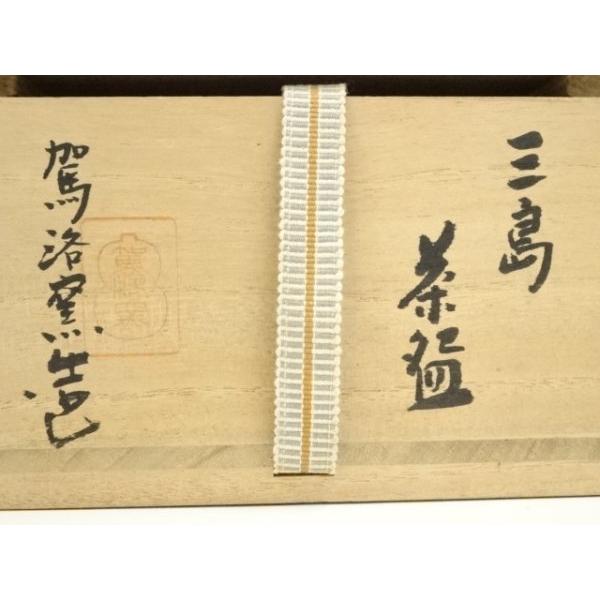 三島
茶盌
駕洛窯造